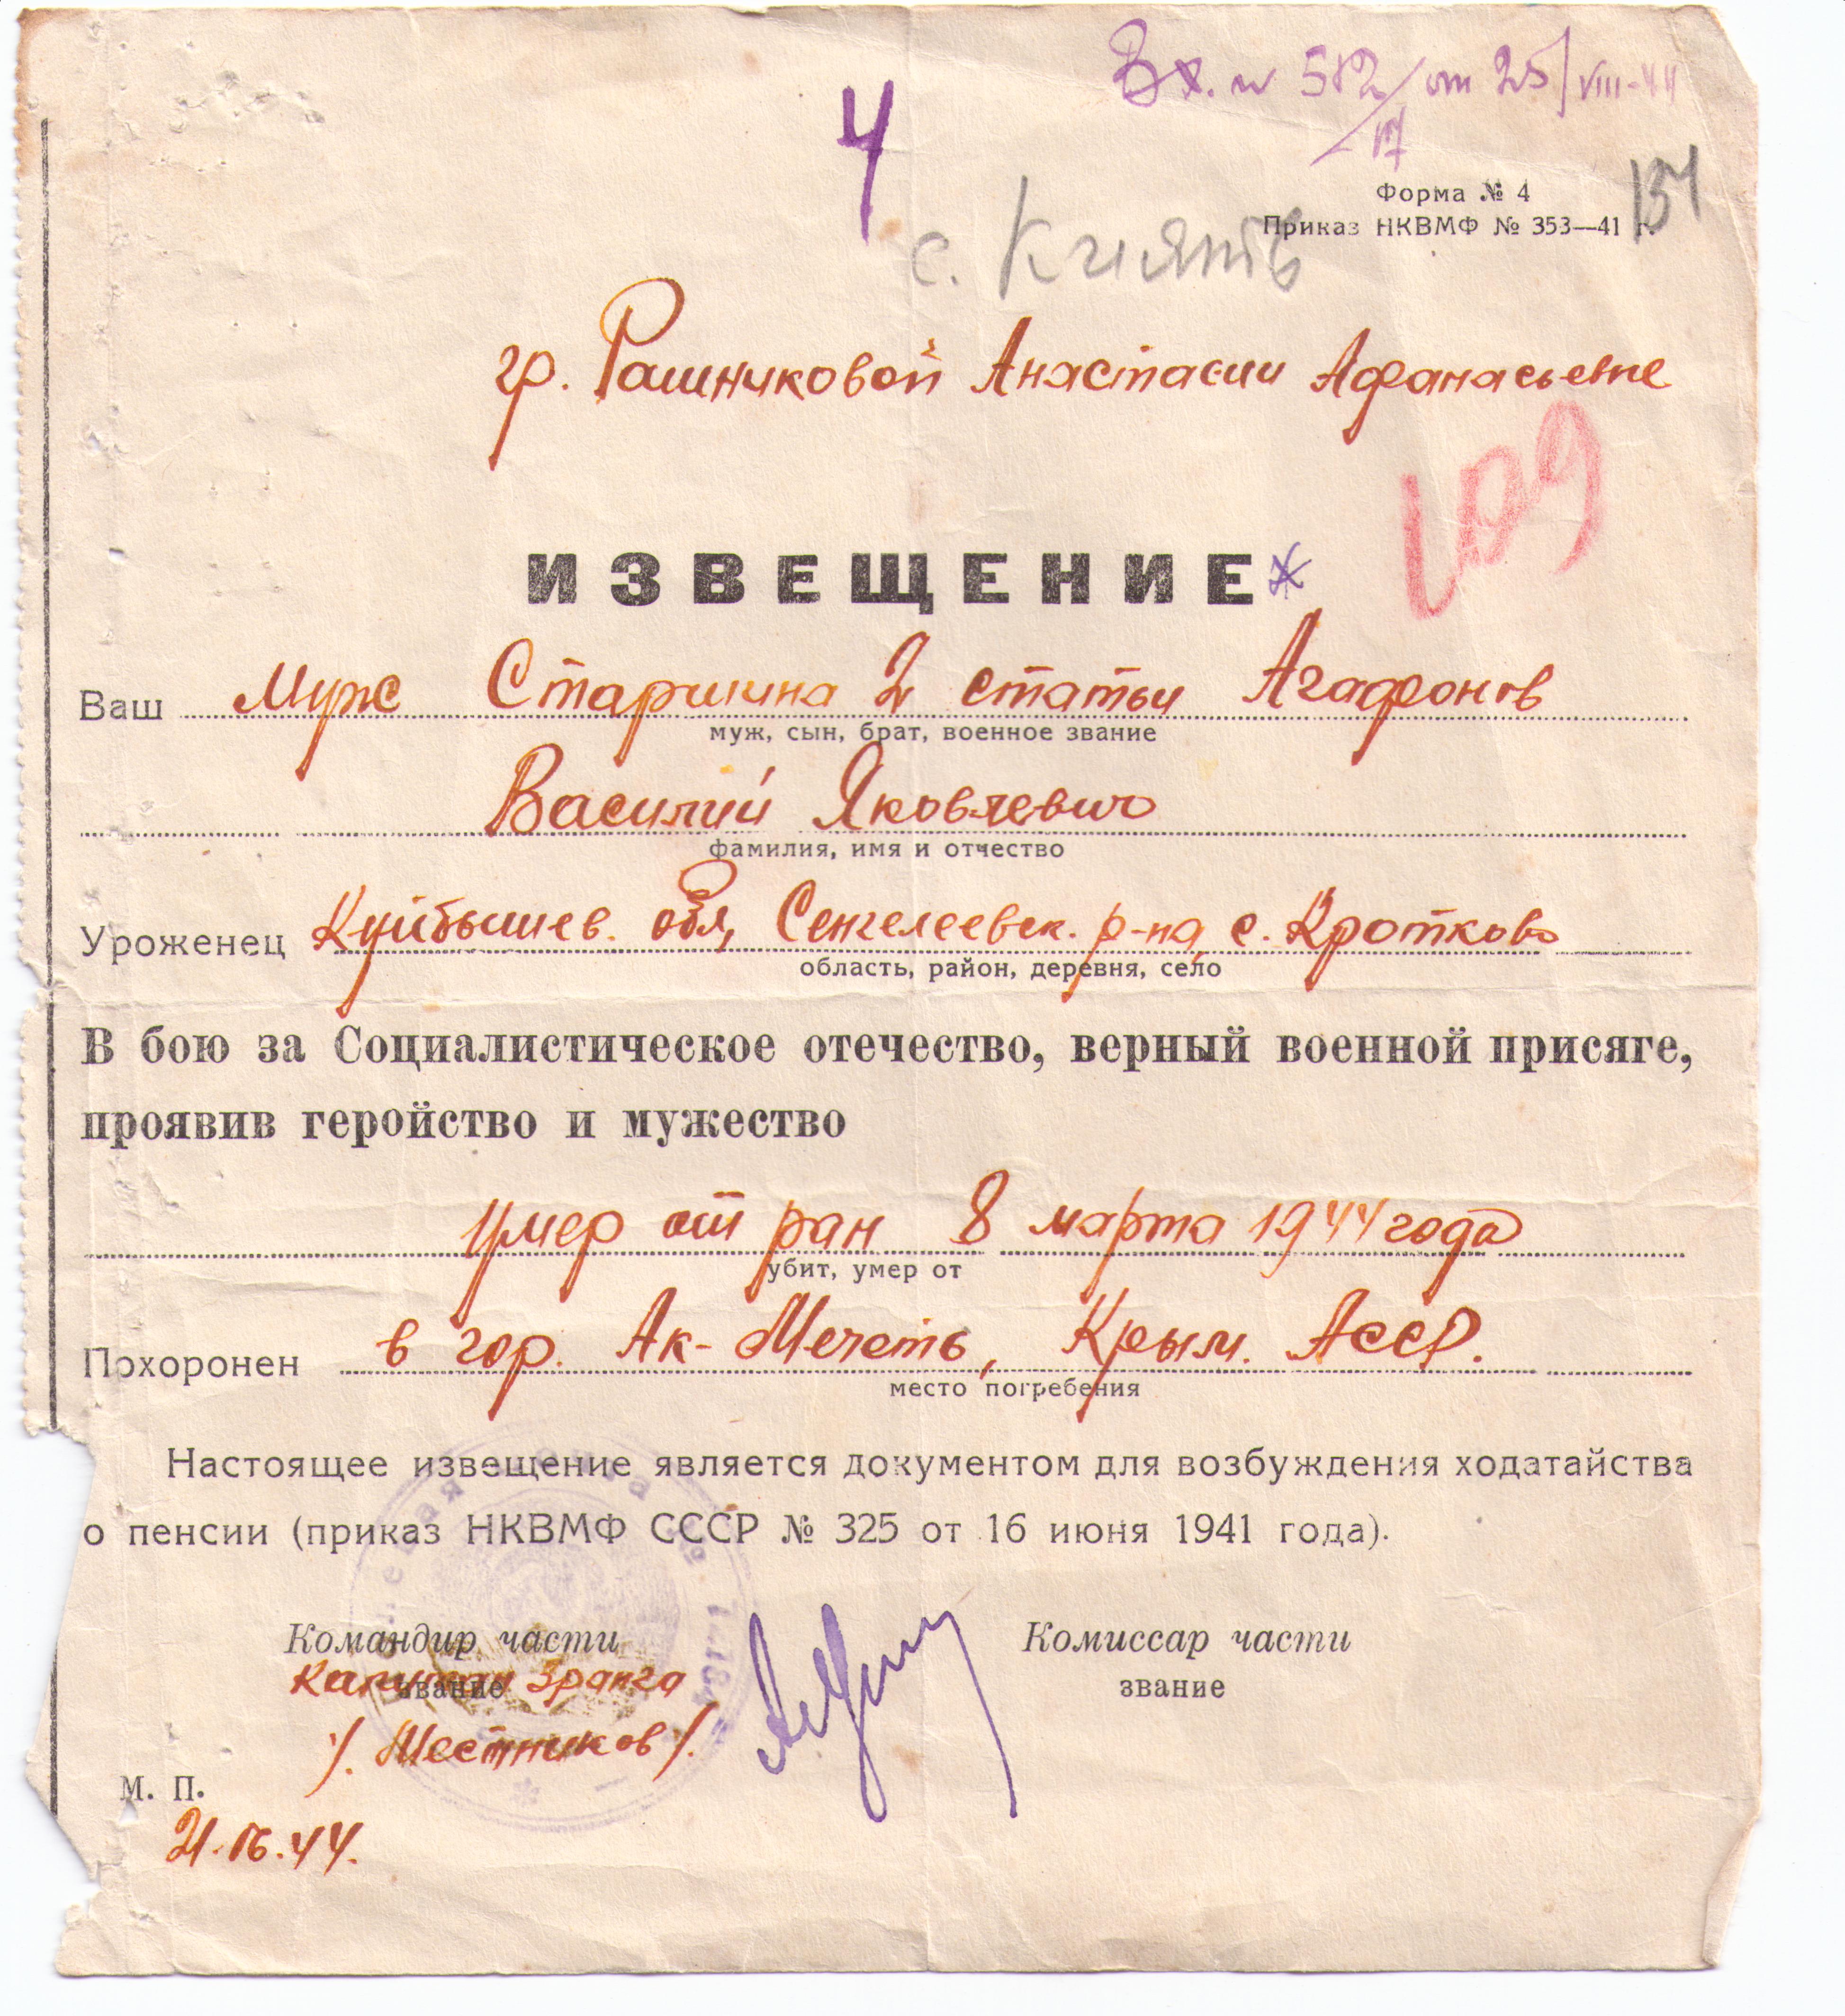 Вх. № 582/17 от 25/VIII-44
4
Форма № 4
154
Приказ НКВМФ № 353—41 г.
с. Княть
гр. Рашниковой Анастасии Афанасьевне
109
ИЗВЕЩЕНИЕ
Ваш Муж Старшина 2 статьи Агафонов
муж, сын, брат, военное звание
Василий Яковлевич
фамилия, имя и отчество
Уроженец Куйбышев. обл, Сенгелеевск. р-на, с. Кротково
область, район, деревня, село
В бою за Социалистическое отечество, верный военной присяге,
проявив геройство и мужество
умер от ран 8 марта 1944 года
убит, умер от
Похоронен в гор. Ак-Мечеть, Крым. АССР.
место погребения
Настоящее извещение является документом для возбуждения ходатайства
о пенсии (приказ НКВМФ СССР № 325 от 16 июня 1941 года).
Командир части Комиссар части
Капитан 3 ранга
звание звание
/. Шестников /.
М. П.
21.IV.44.